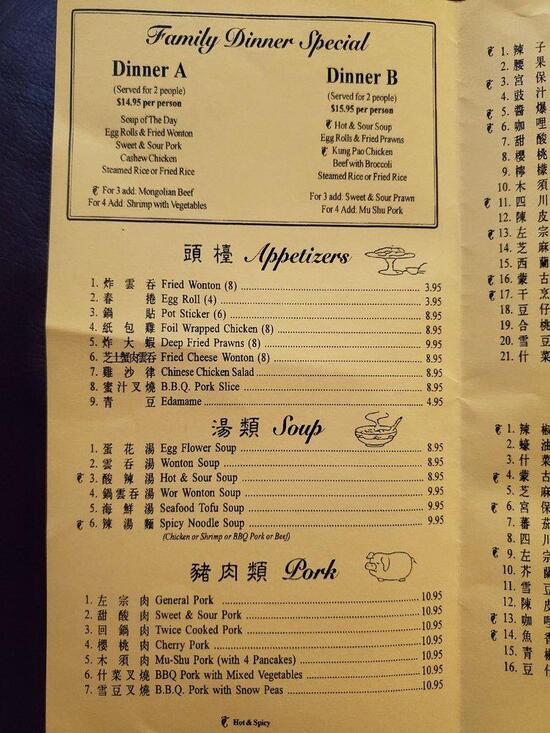 Family Dinner Special
Dinner A
(Served for 2 people)
$14.95 per person
Soup of The Day
Egg Rolls & Fried Wonton
Sweet & Sour Pork
Cashew Chicken
Steamed Rice or Fried Rice
For 3 add: Mongolian Beef
For 4 Add. Shrimp with Vegetables
Dinner B
(Served for 2 people)
$15.95 per person
Hot & Sour Soup
Egg Rolls & Fried Prawns
Kung Pao Chicken
Beef with Broccoli
Steamed Rice or Fried Rice
For 3 add: Sweet & Sour Prawn
For 4 Add. Mu Shu Pork
頭檯 Appetizers
1. 炸雲吞 Fried Wonton (8) 3.95
2. 春捲 Egg Roll (4) 3.95
3. 鍋貼 Pot Sticker (6) 8.95
4. 紙包雞 Foil Wrapped Chicken (8) 8.95
5. 炸大蝦 Deep Fried Prawns (8) 9.95
6. 芝士蟹肉雲吞 Fried Cheese Wonton (8) 8.95
7. 雞沙律 Chinese Chicken Salad 8.95
8. 蜜汁叉燒 B.B.Q. Pork Slice 8.95
9. 青豆 Edamame 4.95
湯類 Soup
1. 蛋花湯 Egg Flower Soup 8.95
2. 雲吞湯 Wonton Soup 8.95
3. 酸辣湯 Hot & Sour Soup 8.95
4. 鍋雲吞湯 Wor Wonton Soup 9.95
5. 海鮮湯 Seafood Tofu Soup 9.95
6. 辣湯麵 Spicy Noodle Soup 9.95
(Chicken or Shrimp or BBQ Pork or Beef)
豬肉類 Pork
1. 左宗肉 General Pork 10.95
2. 甜酸肉 Sweet & Sour Pork 10.95
3. 回鍋肉 Twice Cooked Pork 10.95
4. 櫻桃肉 Cherry Pork 10.95
5. 木須肉 Mu-Shu Pork (with 4 Pancakes) 10.95
6. 什菜叉燒 BBQ Pork with Mixed Vegetables 10.95
7. 雪豆叉燒 B.B.Q. Pork with Snow Peas 10.95
Hot & Spicy
1. 辣子
2. 腰果
3. 宮保
4. 豉汁
5. 醬爆
6. 咖哩
7. 甜酸
8. 櫻桃
9. 檸檬
10. 木須
11. 四川
12. 陳皮
13. 左宗
14. 芝麻
15. 西蘭
16. 蒙古
17. 干烹
18. 豆仔
19. 合桃
20. 雪豆
21. 什菜
1. 辣椒
2. 蠔油
3. 什菜
4. 蒙古
5. 芝麻
6. 宮保
7. 蕃茄
8. 四川
9. 左宗
10. 芥蘭
11. 雪豆
12. 陳皮
13. 咖哩
14. 魚香
15. 青椒
16. 豆什